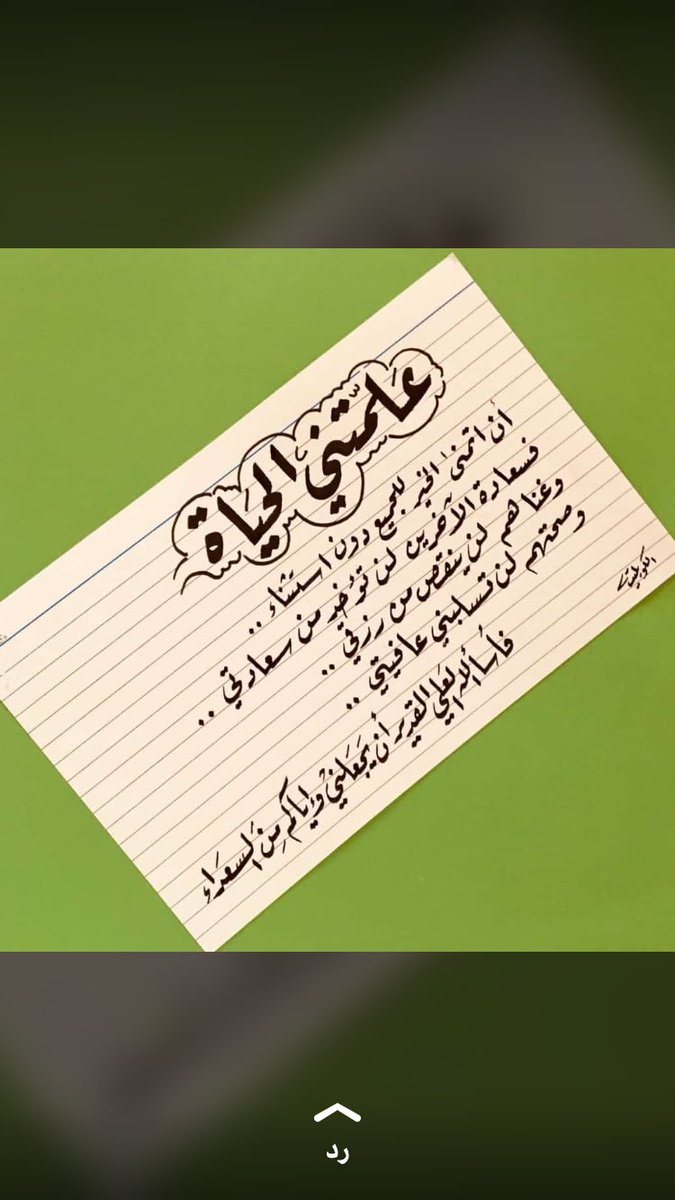 علمتني الحياة
أن اتمنى الخير للجميع دون استثناء ..
فسعادة الآخرين لن تؤخذ من سعادتي ..
وغناهم لن ينقص من رزقي ..
وصحتهم لن تسلبني عافيتي ..
فأسأل الله العلي القدير أن يجعلني وإياكم من السعداء
رد